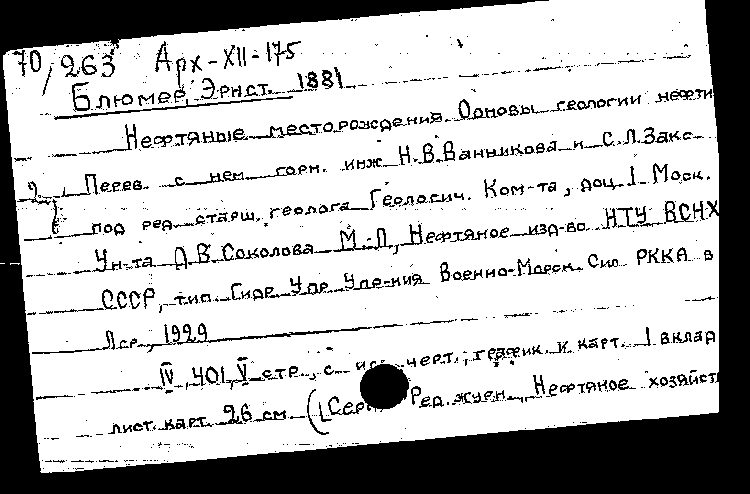 70/263 Арх-XII-175
Блюмер, Эрнст. 1881
Нефтяные месторождения. Основы геологии нефти
Перев. с нем. горн. инж Н.В.Ванникова и С.Л.Закс
под ред. старш. геолога Геологич. Ком-та, доц. 1 Моск.
Ун-та Д.В.Соколова М.-Л., Нефтяное изд-во НТУ ВСНХ
СССР, тип. Гидр. Упр. Упр-ния Военно-Морск. Сил РККА в
Лгр., 1929
IV, 401, V стр., с черт., график. и карт. 1 вклад
лист. карт. 26 см. (Сер Ред. журн. Нефтяное хозяйст